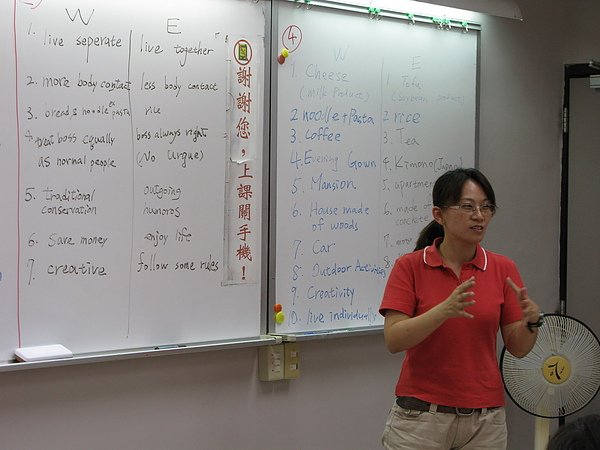 W E
1. live seperate live together
2. more body contact less body contact
3. bread & noodle or pasta rice
4. treat boss equally boss always right
as normal people (No Urgue)
5. traditional outgoing
conservation humoros
6. Save money enjoy life
7. creative follow some rules
謝謝您，上課關手機！
4
W E
1. Cheese 1. Tofu
(Milk Product) (Soybean product)
2 noodle + Pasta 2 rice
3. Coffee 3. Tea
4. Evening Gown 4. Kimono
5. Mansion 5. apartment
6. House made 6. made of
of woods concrete
7. Car 7.
8. Outdoor Activities 8
9. Creativity
10. live individually